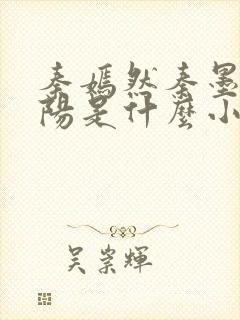 秦嫣然秦墨
陽是什麼小
吴崇輝